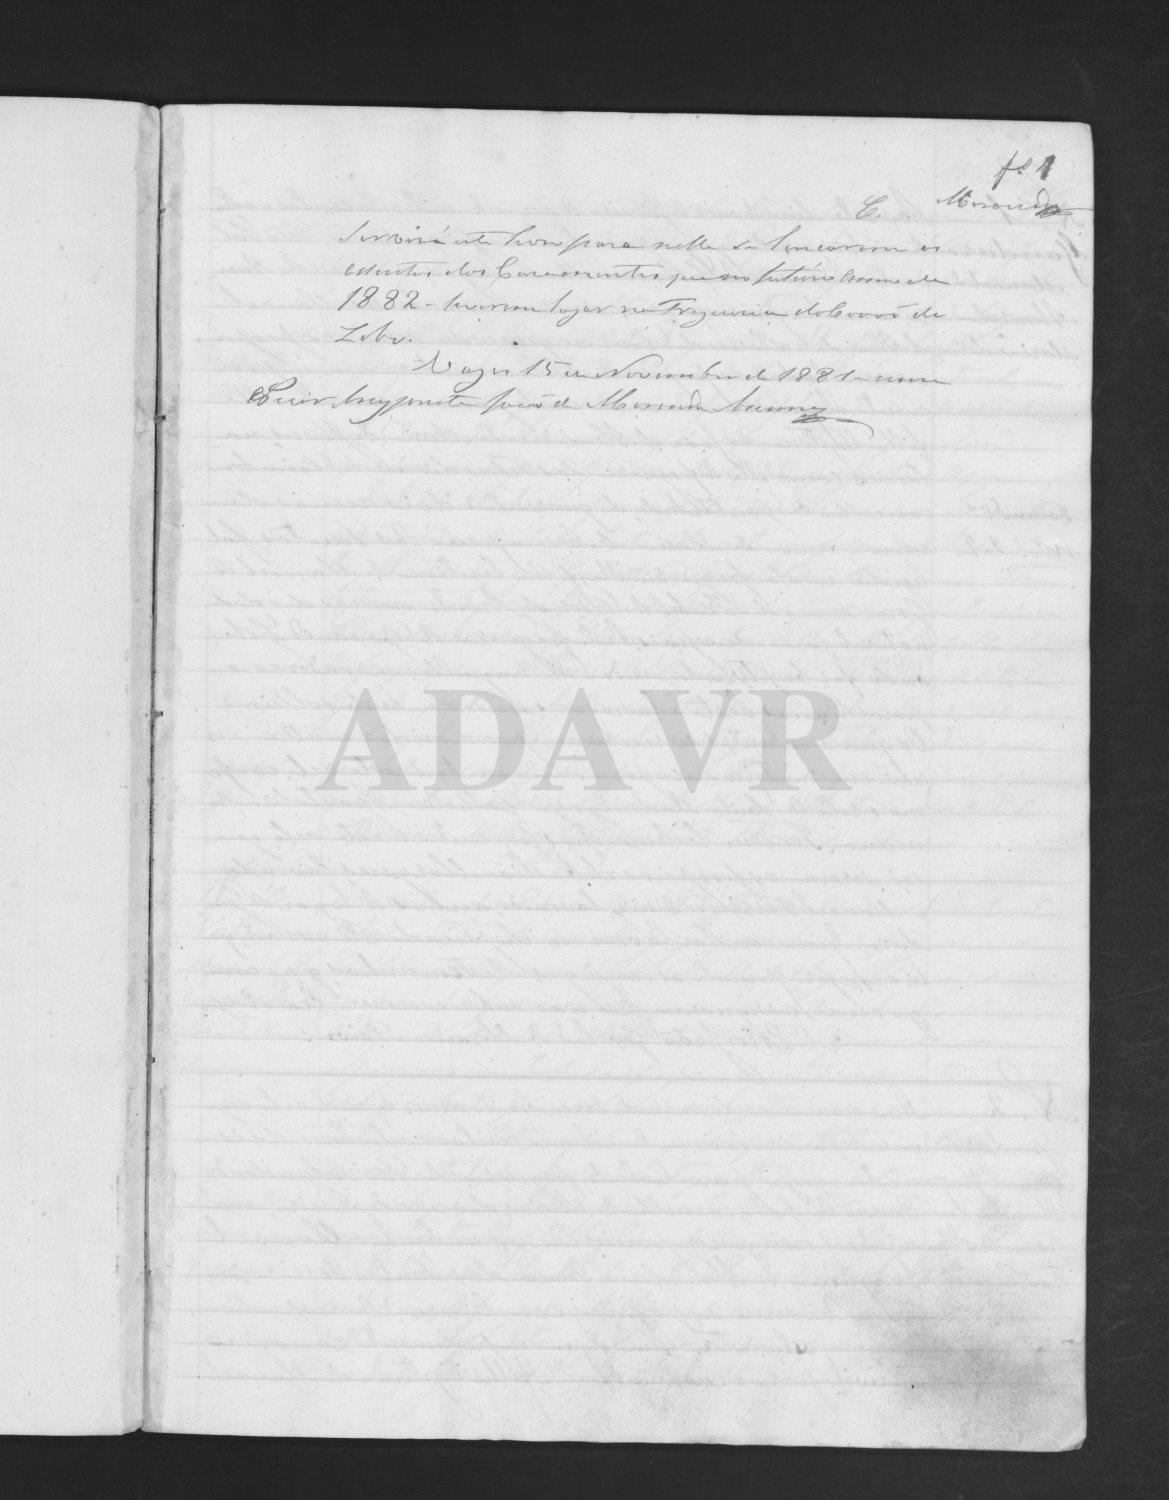 fs 1
Miranda
C.
Servirá este livro para nelle se lancarem os
assentos dos Casamentos que no futúro anno de
1882 - tiverem logar na Freguezia do Covão do
Lobo.
Vagos 15 de Novembro de 1881 - 
O Prior Arcypreste João de Miranda
ADAVR